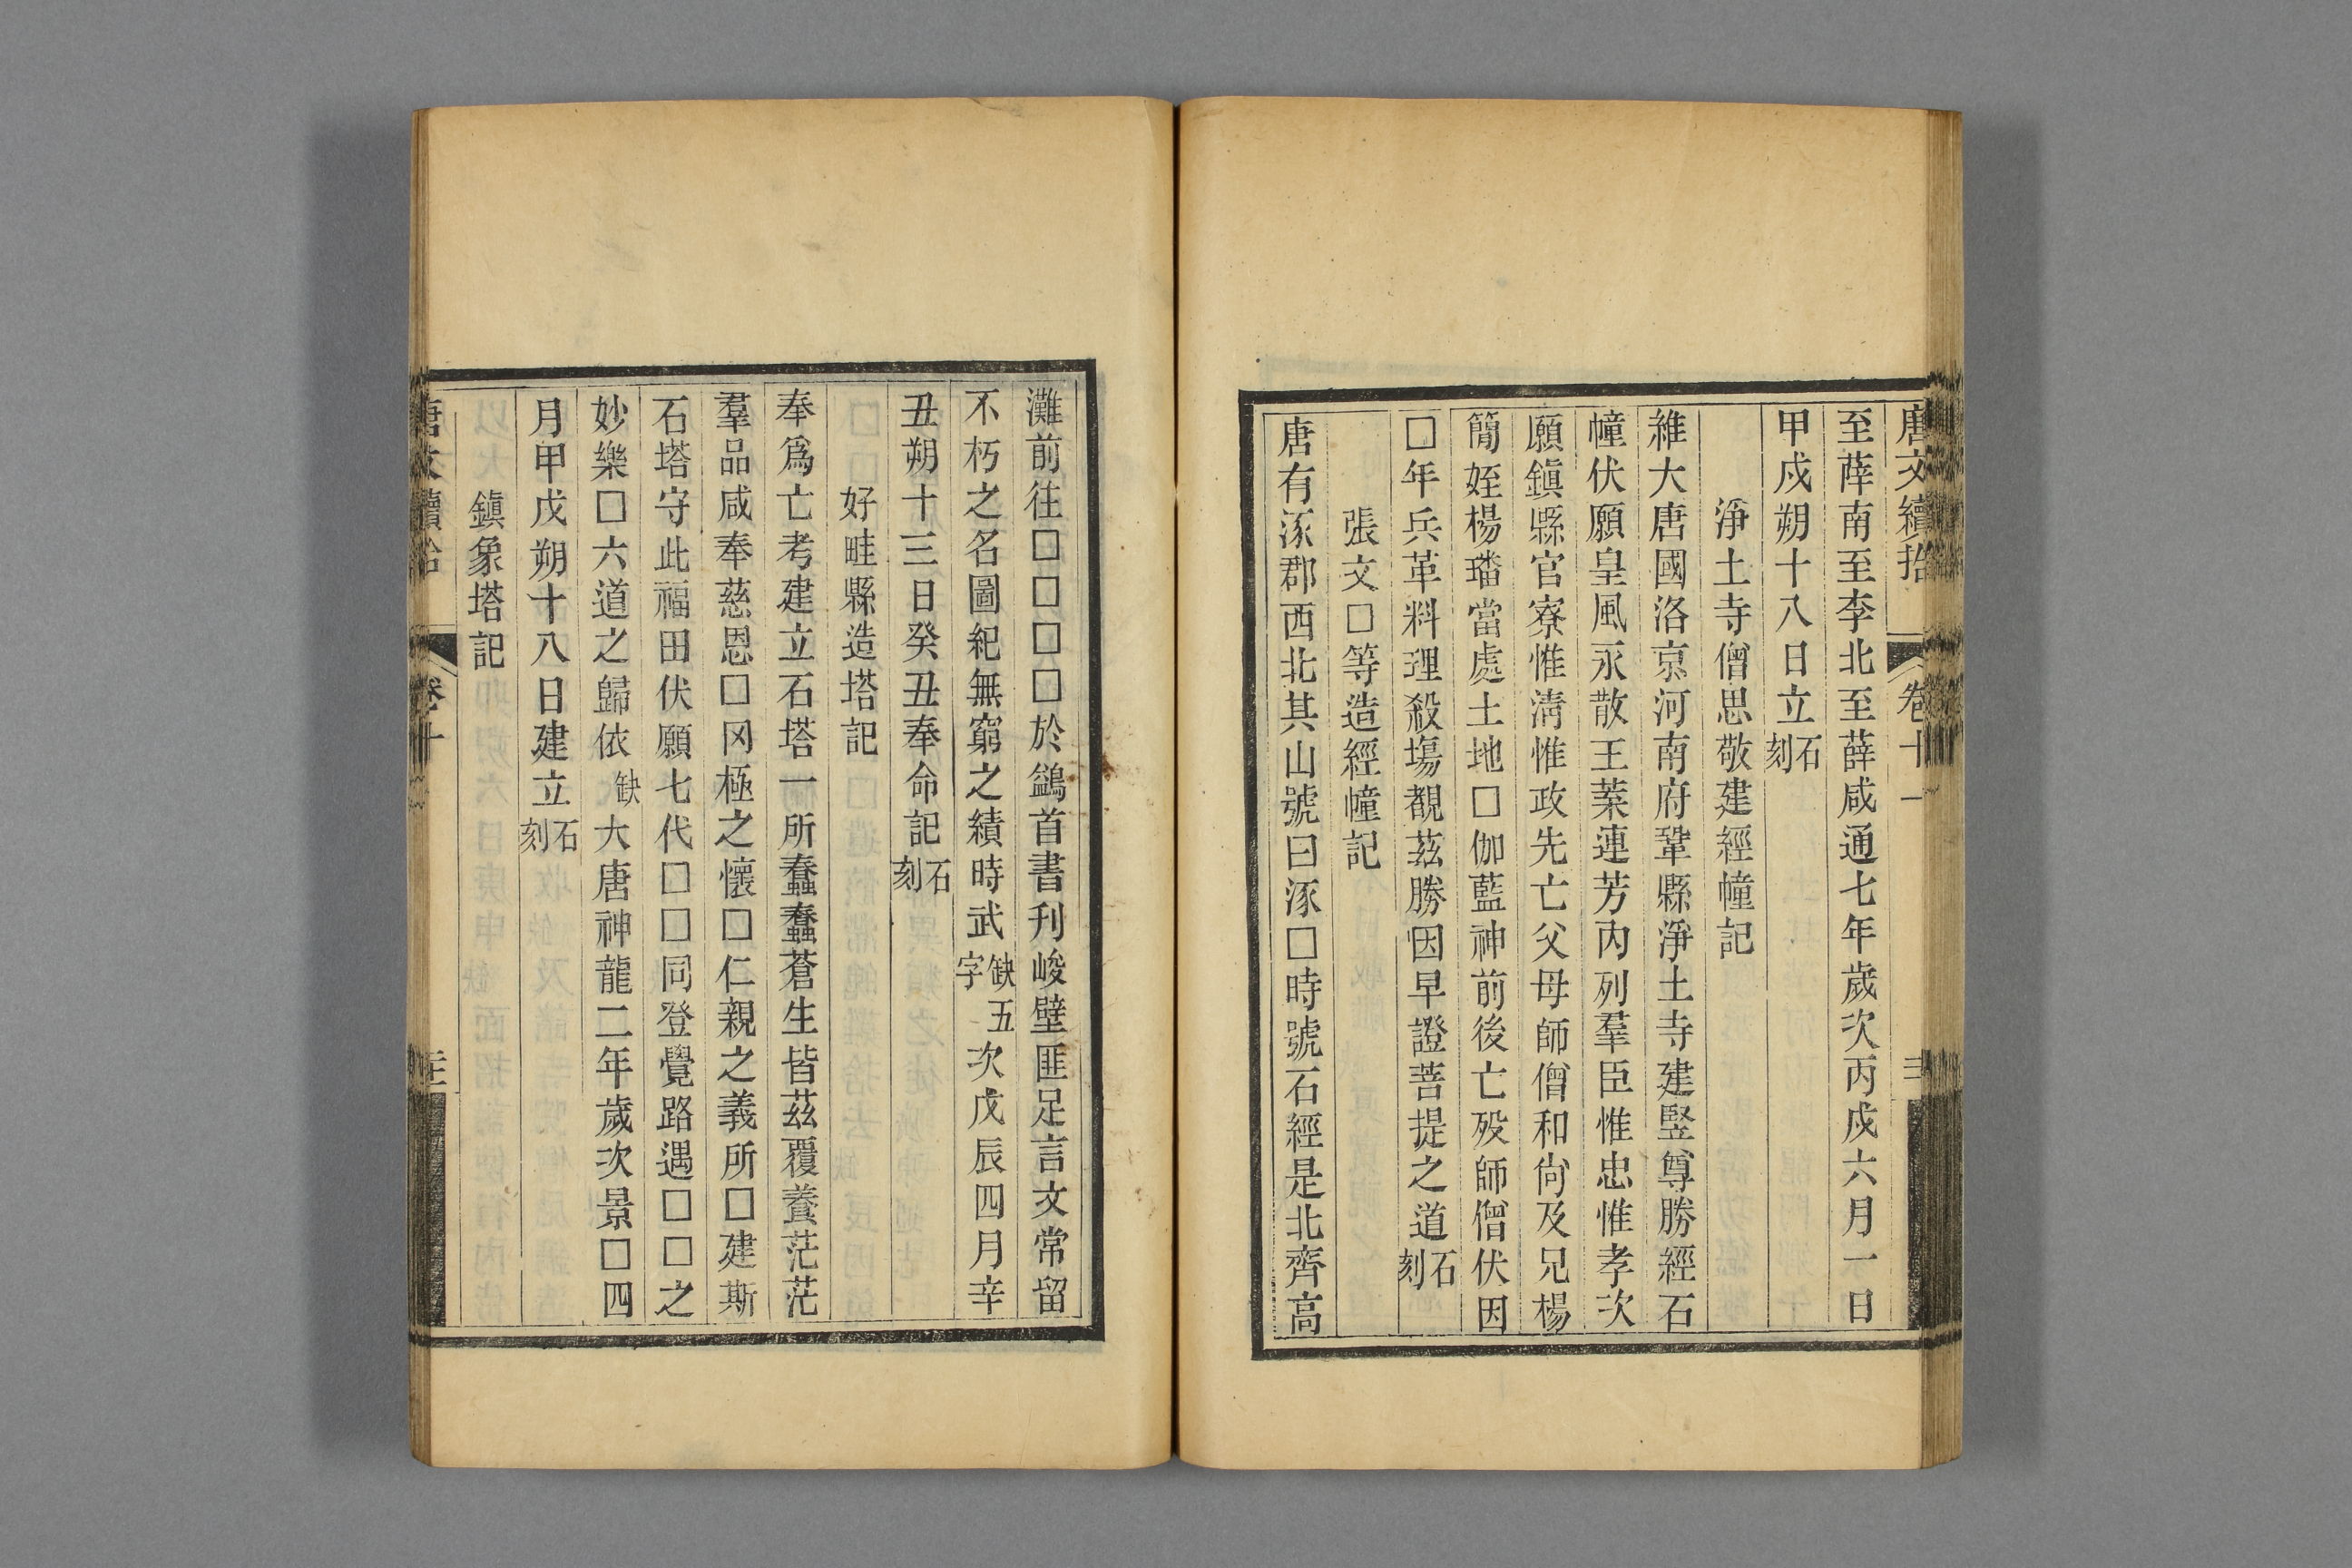 唐文續拾
卷十一
至薛南至李北至薛咸通七年歲次丙戌六月一日
甲戌朔十八日立石刻
淨土寺僧思敬建經幢記
維大唐國洛京河南府鞏縣淨土寺建竪尊勝經石
幢伏願皇風永散王葉連芳內列羣臣惟忠惟孝次
願鎭縣官寮惟淸惟政先亡父母師僧和尙及兄楊
簡姪楊璠當處土地□伽藍神前後亡歿師僧伏因
□年兵革料理殺塲覩茲勝因早證菩提之道石刻
張文□等造經幢記
唐有涿郡西北其山號曰涿□時號石經是北齊高
灘前往□□□□於鷁首書刋峻壁匪足言文常留
不朽之名圖紀無窮之績時武缺五字次戊辰四月辛
丑朔十三日癸丑奉命記石刻
好畦縣造塔記
奉爲亡考建立石塔一所蠢蠢蒼生皆茲覆養茫茫
羣品咸奉慈恩□冈極之懷□仁親之義所□建斯
石塔守此福田伏願七代□□同登覺路遇□□之
妙樂□六道之歸依缺大唐神龍二年歲次景□四
月甲戊朔十八日建立石刻
鎭象塔記
唐文續拾
卷十